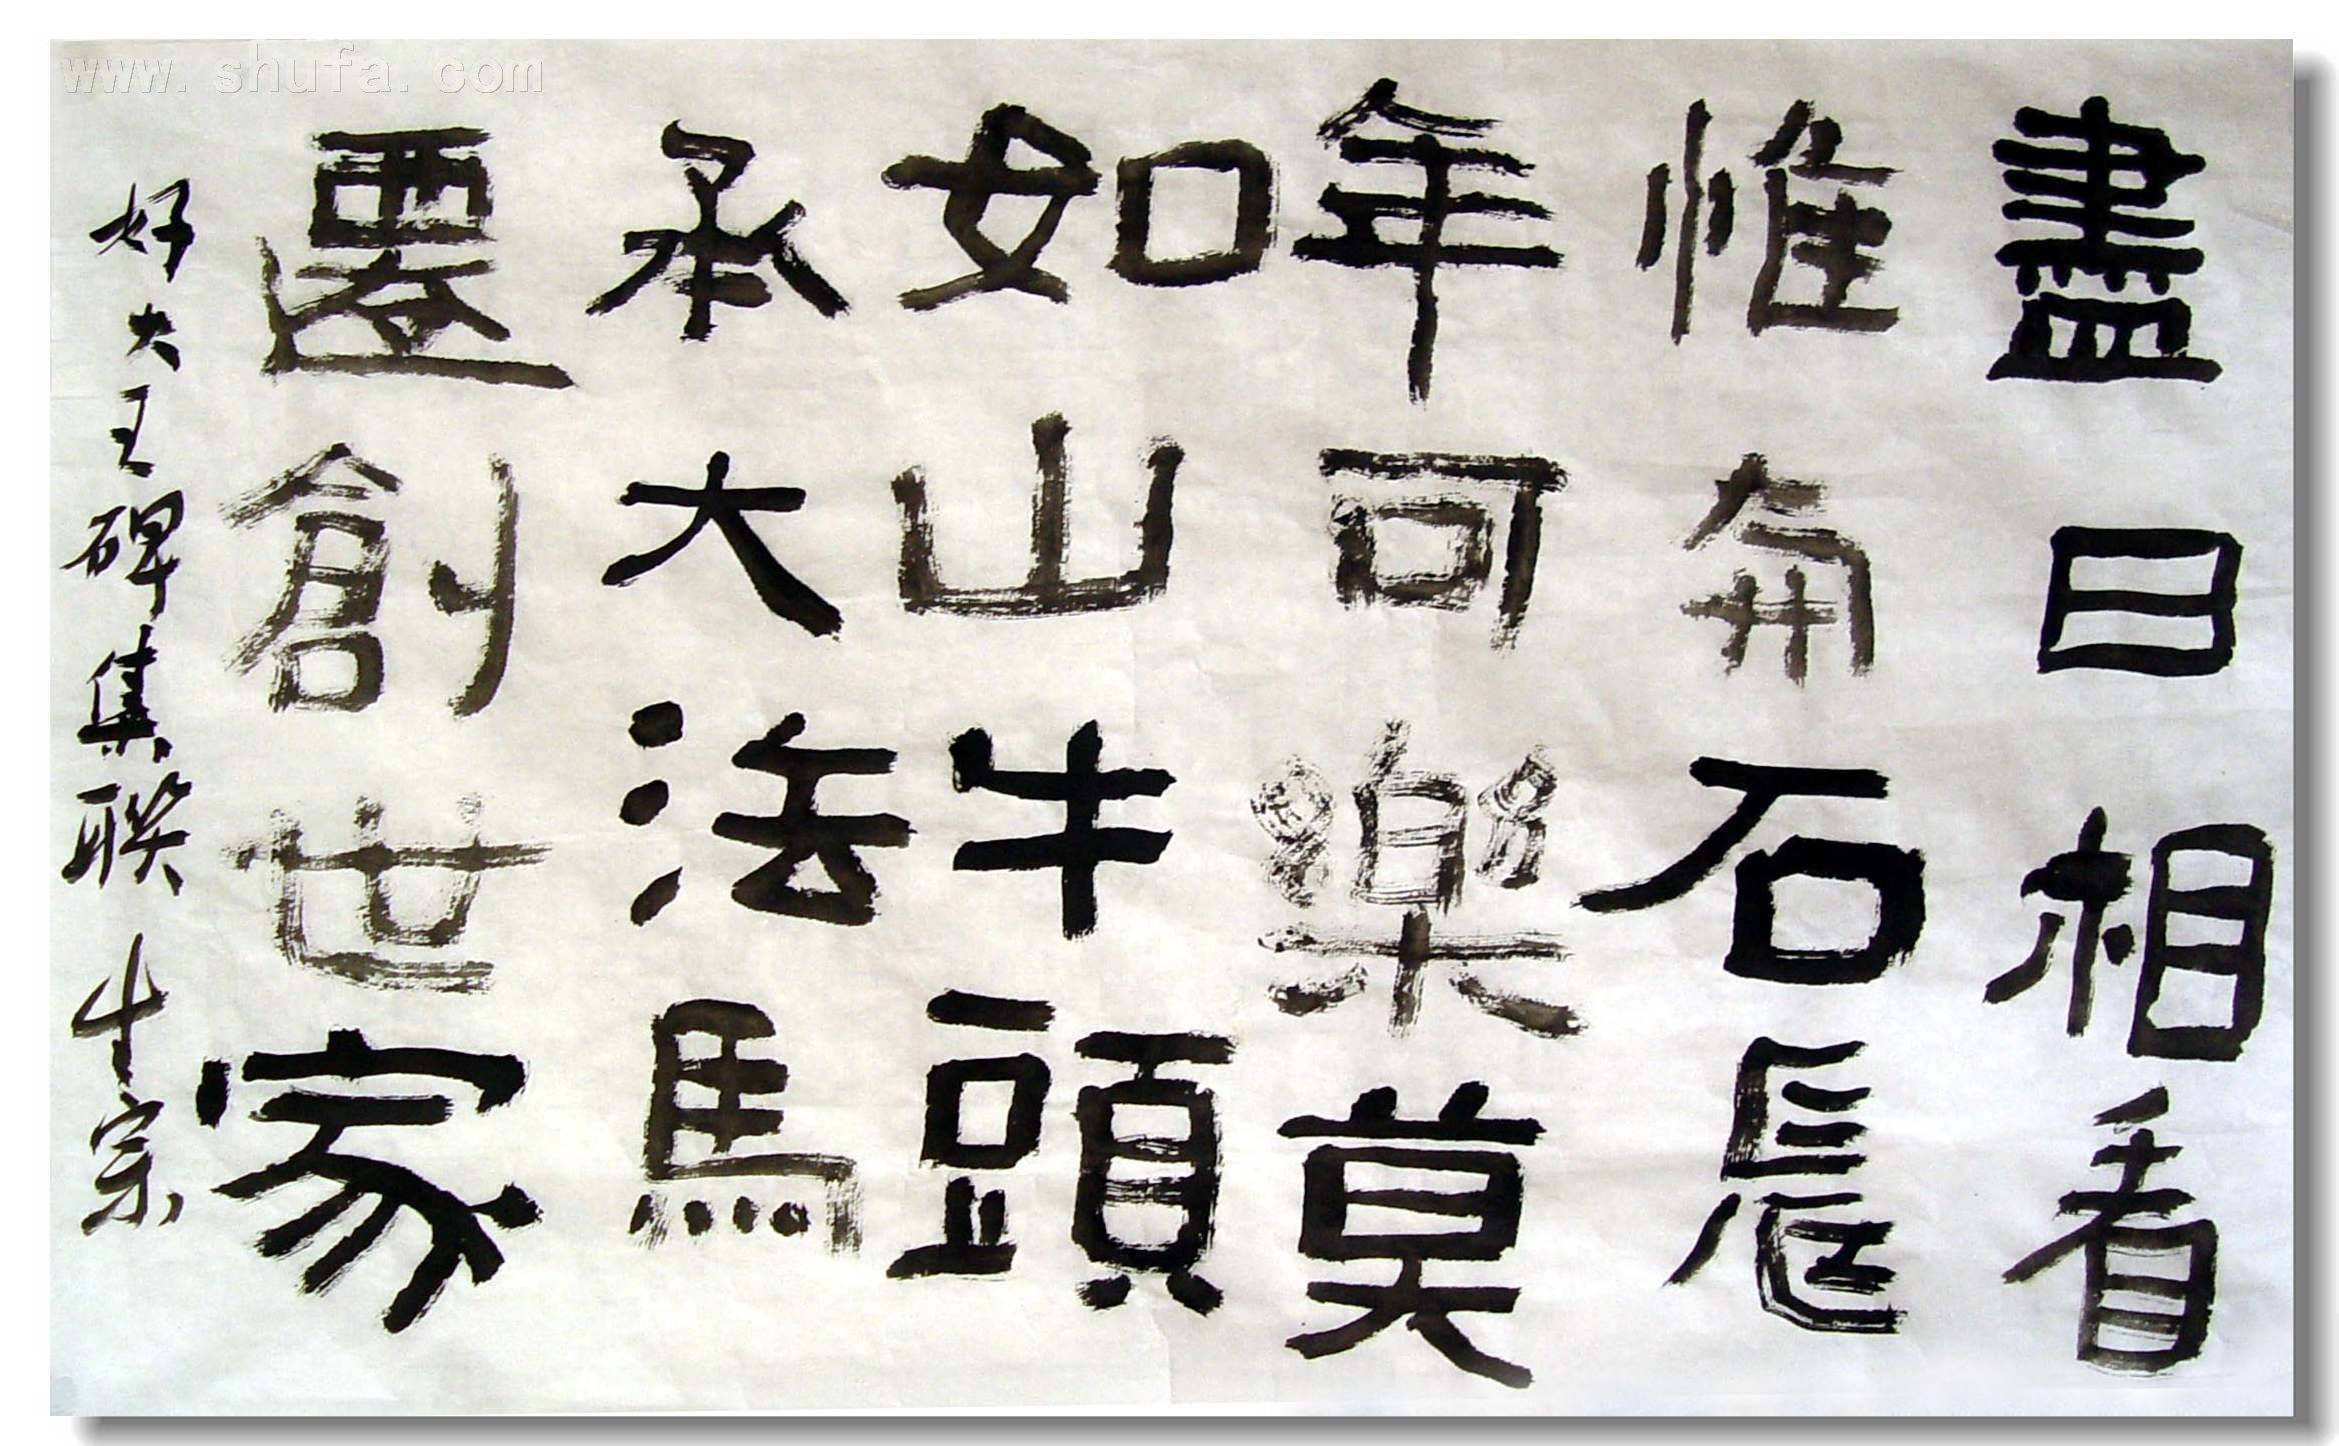 www.shufa.com
盡日相看
惟有石長
年可樂莫
如山牛頭
承大法馬
遷創世家
好大王碑集聯 牛宗